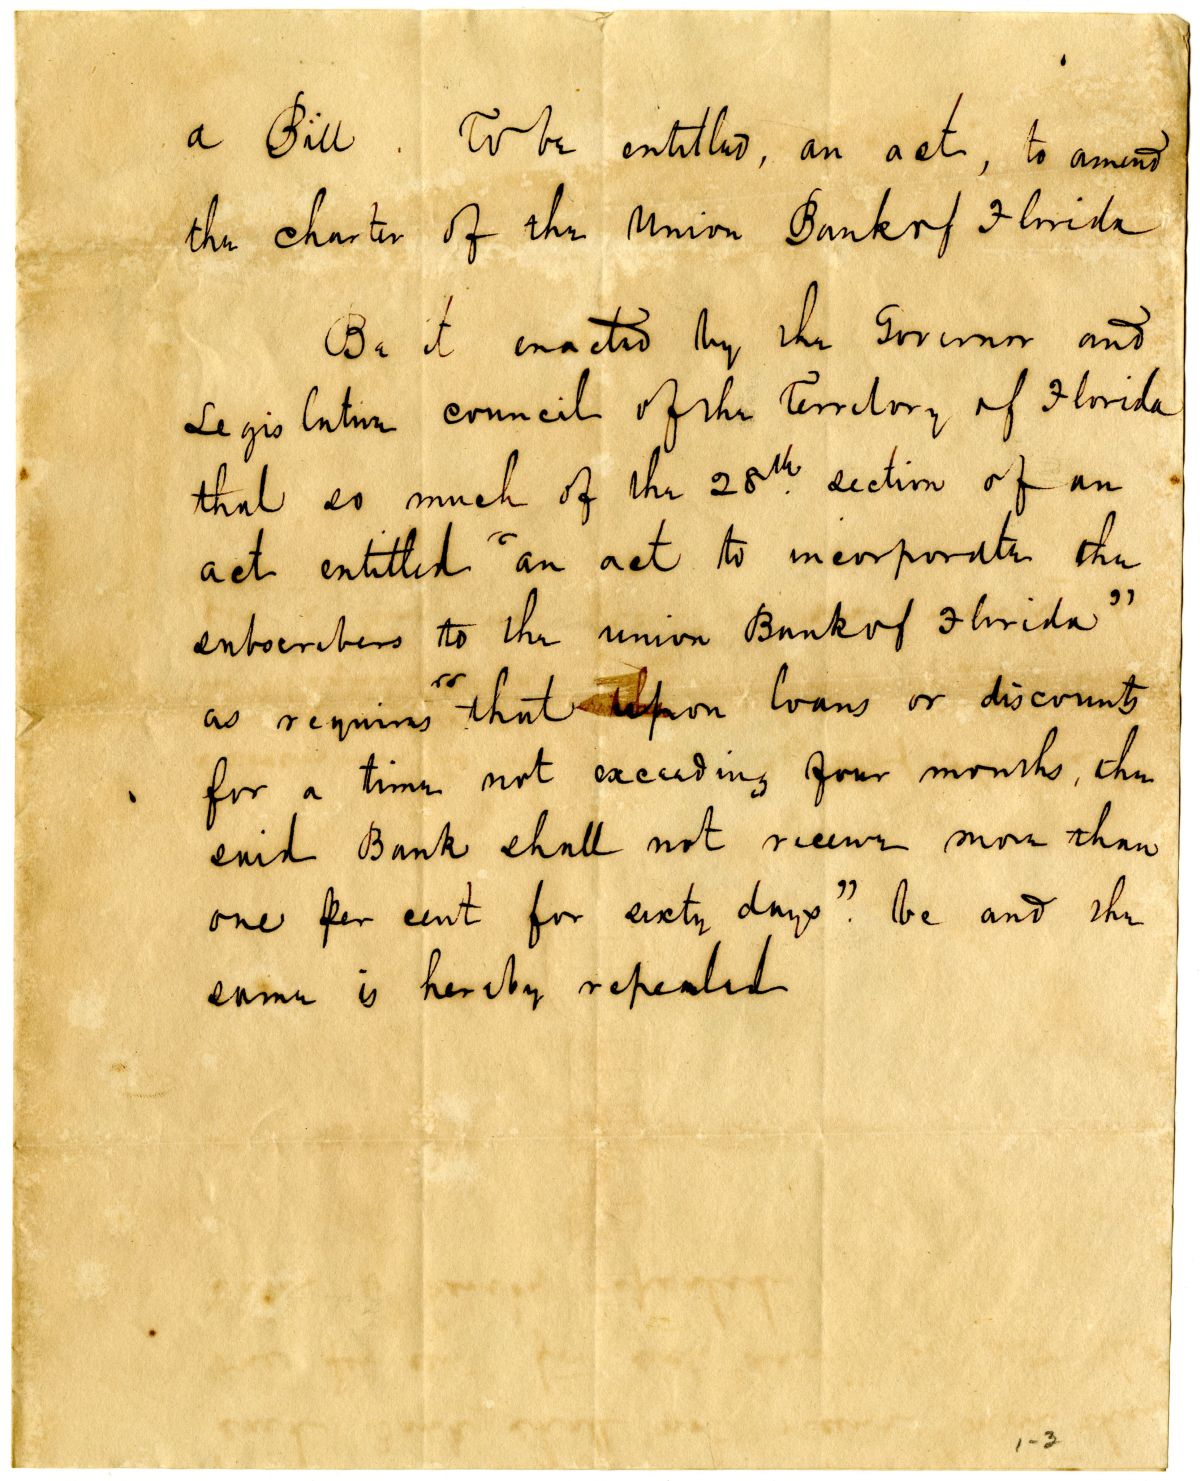 a Bill. To be entitled, an act, to amend
the charter of the Union Bank of Florida
Be it enacted by the Governor and
Legislative council of the Territory of Florida
that so much of the 28th. section of an
act entitled "an act to incorporate the
subscribers to the union Bank of Florida"
as requires "that upon loans or discounts
for a time not exceeding four months, the
said Bank shall not receive more than
one per cent for sixty days". be and the
same is hereby repealed
1-3